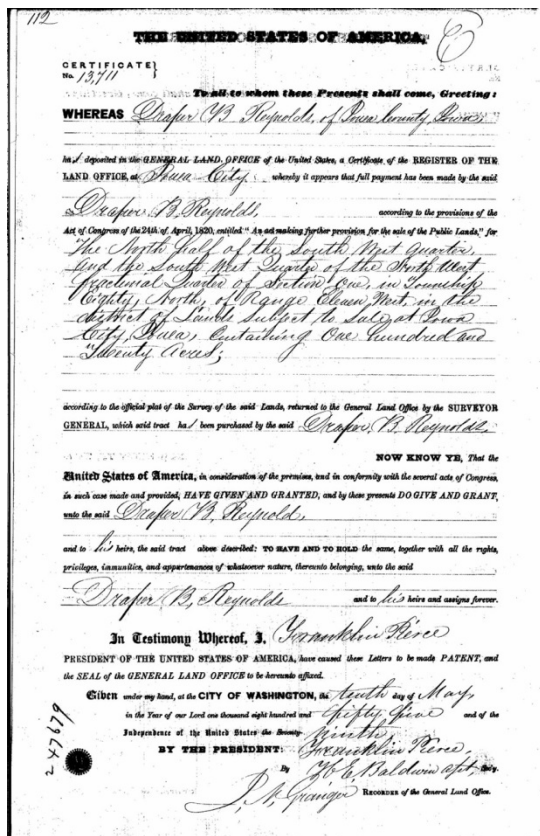 112
THE UNITED STATES OF AMERICA,
CERTIFICATE
No. 13,711
To all to whom these Presents shall come, Greeting:
WHEREAS Draper B Reynolds, of Iowa County, Iowa
ha deposited in the GENERAL LAND OFFICE of the United States, a Certificate of the REGISTER OF THE
LAND OFFICE, at Iowa City whereby it appears that full payment has been made by the said
Draper B. Reynolds, according to the provisions of the
Act of Congress of the 24th of April, 1820, entitled "An act making further provision for the sale of the Public Lands," for
The North half of the South West quarter,
and the South West Quarter of the North West
fractional Quarter of Section One, in Township
Eighty, North, of Range Eleven West, in the
district of Lands Subject to Sale at Iowa
City, Iowa, Containing One hundred and
Twenty Acres;
according to the official plat of the Survey of the said Lands, returned to the General Land Office by the SURVEYOR
GENERAL, which said tract ha been purchased by the said Draper B. Reynolds,
NOW KNOW YE, That the
United States of America, in consideration of the premises, and in conformity with the several acts of Congress,
in such case made and provided, HAVE GIVEN AND GRANTED, and by these presents DO GIVE AND GRANT,
unto the said Draper B. Reynold,
and to his heirs, the said tract above described: TO HAVE AND TO HOLD the same, together with all the rights,
privileges, immunities, and appurtenances of whatsoever nature, thereunto belonging, unto the said
Draper B. Reynolds and to his heirs and assigns forever.
In Testimony Whereof, I, Franklin Pierce
PRESIDENT OF THE UNITED STATES OF AMERICA, have caused these Letters to be made PATENT, and
the SEAL of the GENERAL LAND OFFICE to be hereunto affixed.
Given under my hand, at the CITY OF WASHINGTON, the tenth day of May,
in the Year of our Lord one thousand eight hundred and fifty five and of the
Independence of the United States the Seventy ninth,
BY THE PRESIDENT: Franklin Pierce,
By H. E. Baldwin asst, Sec'y.
J. N. Granger RECORDER of the General Land Office.
247679